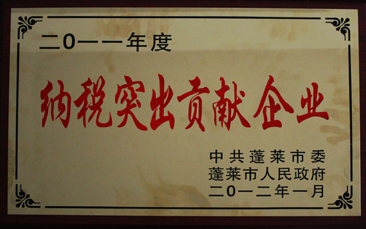 二0一一年度
纳税突出贡献企业
中共蓬莱市委
蓬莱市人民政府
二0一二年一月